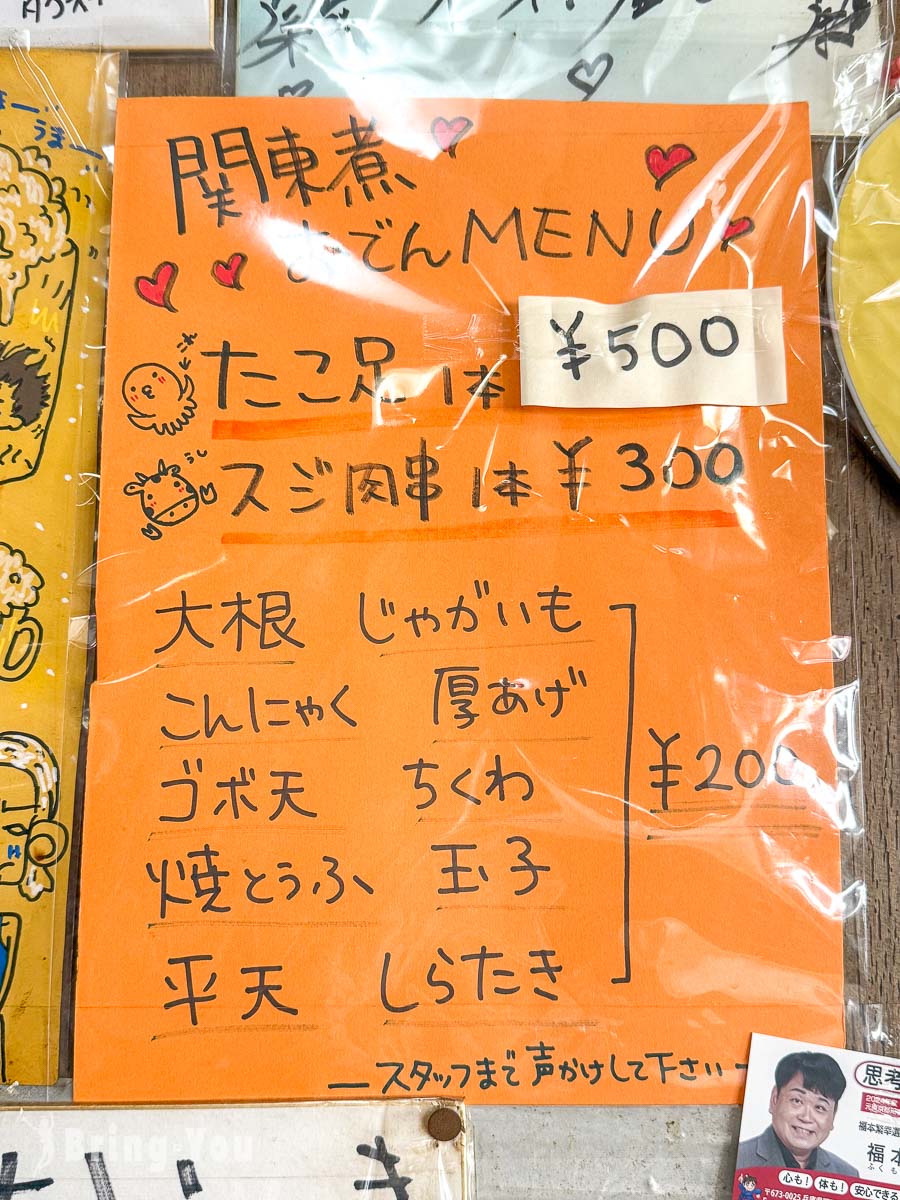 うまー
関東煮
おでんMENU
たこ足 1本 ¥500
うし
スジ肉串 1本 ¥300
大根 じゃがいも
こんにゃく 厚あげ
ゴボ天 ちくわ
¥200
焼とうふ 玉子
平天 しらたき
スタッフまで声かけして下さい
思考
福本
ふくも
心も! 体も! 安心できる
〒673-0025 兵庫
Bring You